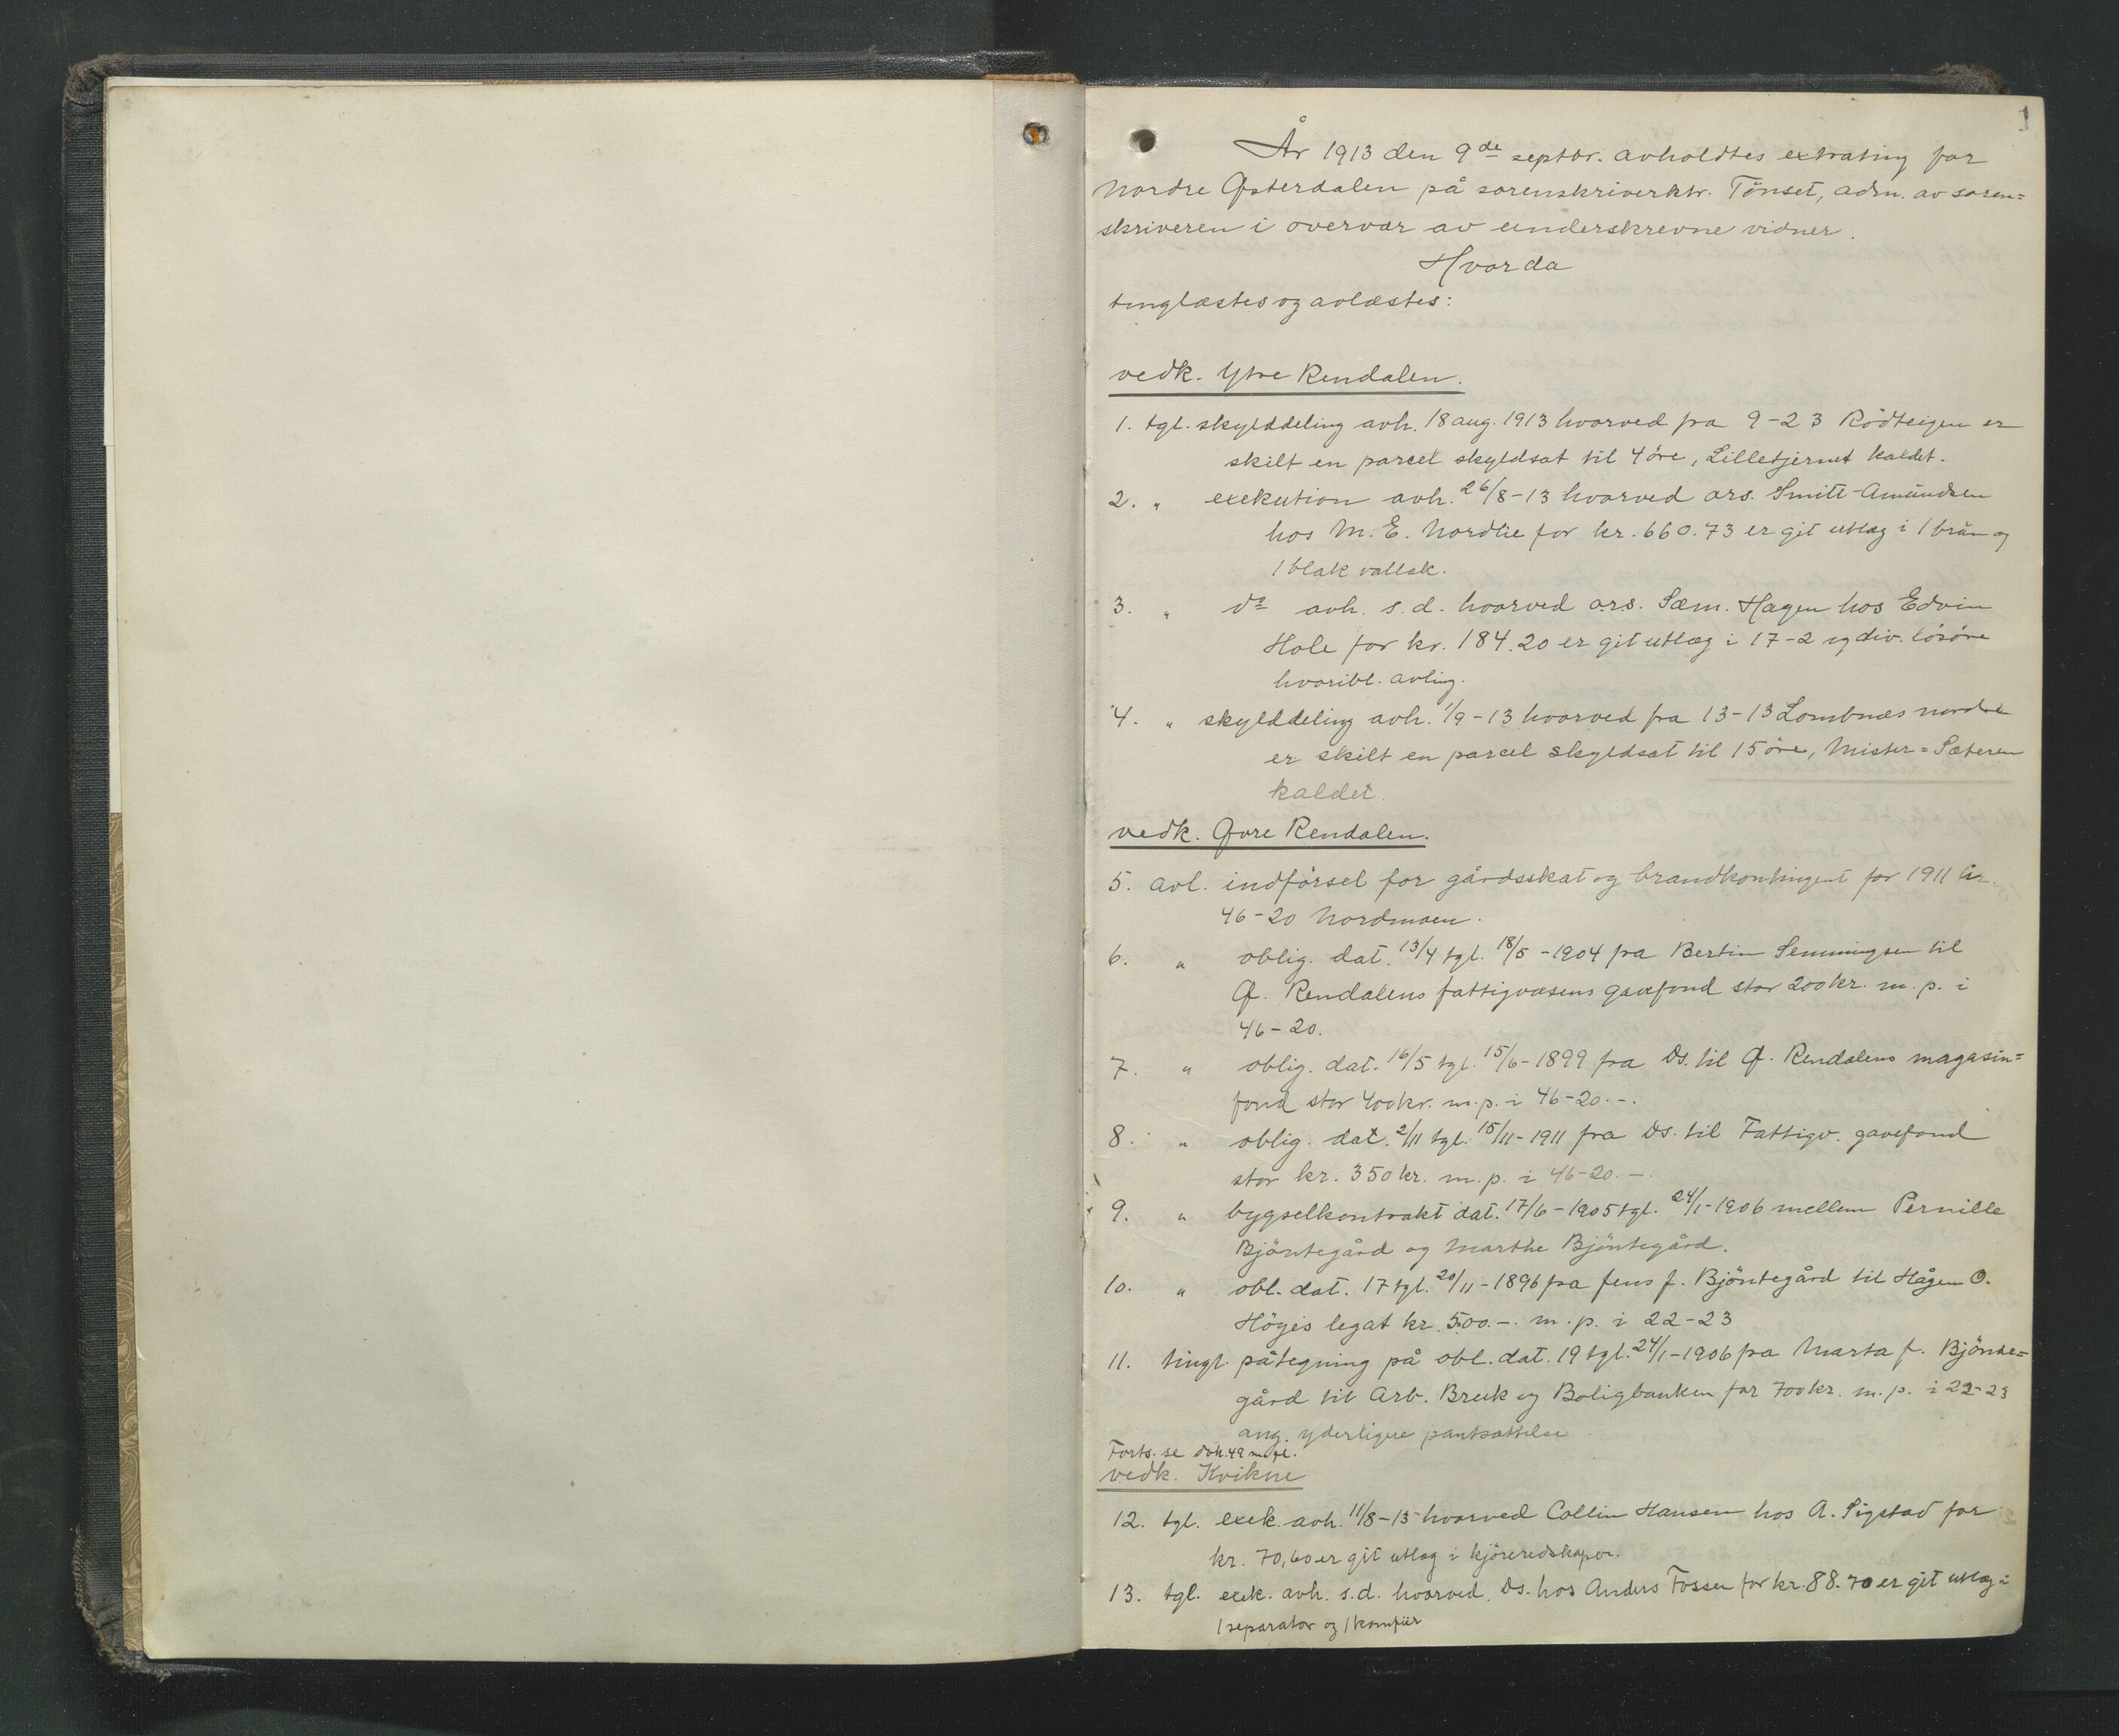 1
År 1913 den 9de septbr. avholdtes extrating for
Nordre Østerdalen på sorenskriverktr. Tönset, adm. av soren=
skriveren i overvær av underskrevne vidner.
Hvorda
tinglæstes og avlæstes:
vedk. Ytre Rendalen.
1. tgl. skylddeling avh. 18 aug. 1913 hvorved fra 9-23 Rödteigen er
skilt en parcel skyldsat til 4 öre, Lilletjernet kaldet.
2. " exekution avh. 26/8-13 hvorved ors. Smitt-Amundsen
hos M. E. Nordlie for kr. 660.73 er git utlæg i 1 brun og
1 blak vallak.
3. " do avh. s.d. hvorved ors. Sæm. Hagen hos Edvin
Hole for kr. 184.20 er git utlæg i 17-2 og div. lösöre
hvoribl. avling.
4. " skylddeling avh. 1/9-13 hvorved fra 13-13 Lombnæs nordre
er skilt en parcel skyldsat til 15 öre, Mister=Sæteren
kaldet.
vedk. Øvre Rendalen.
5. avl. indförsel for gårdsskat og brandkontingent for 1911 i
46-20 Nordmoen.
6. " oblig. dat. 13/4 tgl. 18/5-1904 fra Bertin Semmingsen til
Ø. Rendalens fattigvæsens gavefond stor 200 kr. m. p. i
46-20.
7. " oblig. dat. 16/5 tgl. 15/6-1899 fra Ds. til Ø. Rendalens magasin=
fond stor 400 kr. m. p. i 46-20.-.
8. " oblig. dat. 2/11 tgl. 15/11-1911 fra Ds. til Fattigv. gavefond
stor kr. 350 kr. m. p. i 46-20.-
9. " bygselkontrakt dat. 17/6-1905 tgl. 24/1-1906 mellem Pernille
Bjöntegård og Marthe Bjöntegård.
10. " obl. dat. 17 tgl. 20/11-1896 fra Jens J. Bjöntegård til Hågen O.
Höyes legat kr. 500.-. m. p. i 22-23
11. tingl. påtegning på obl. dat. 19 tgl. 24/1-1906 fra Marta J. Bjönte=
gård til Arb. Bruk og Boligbanken for 700 kr. m. p. i 22-23
ang. yderligere pantsættelse
Forts. se dok. 49 m. fl.
vedk. Kvikne
12. tgl. exek. avh. 11/8-13 hvorved Collin Hansen hos A. Sigstad for
kr. 70,60 er git utlæg i kjöreredskaper.
13. tgl. exek. avh. s.d. hvorved Ds. hos Anders Fossen for kr. 88.70 er git utlæg i
1 separator og 1 komfür